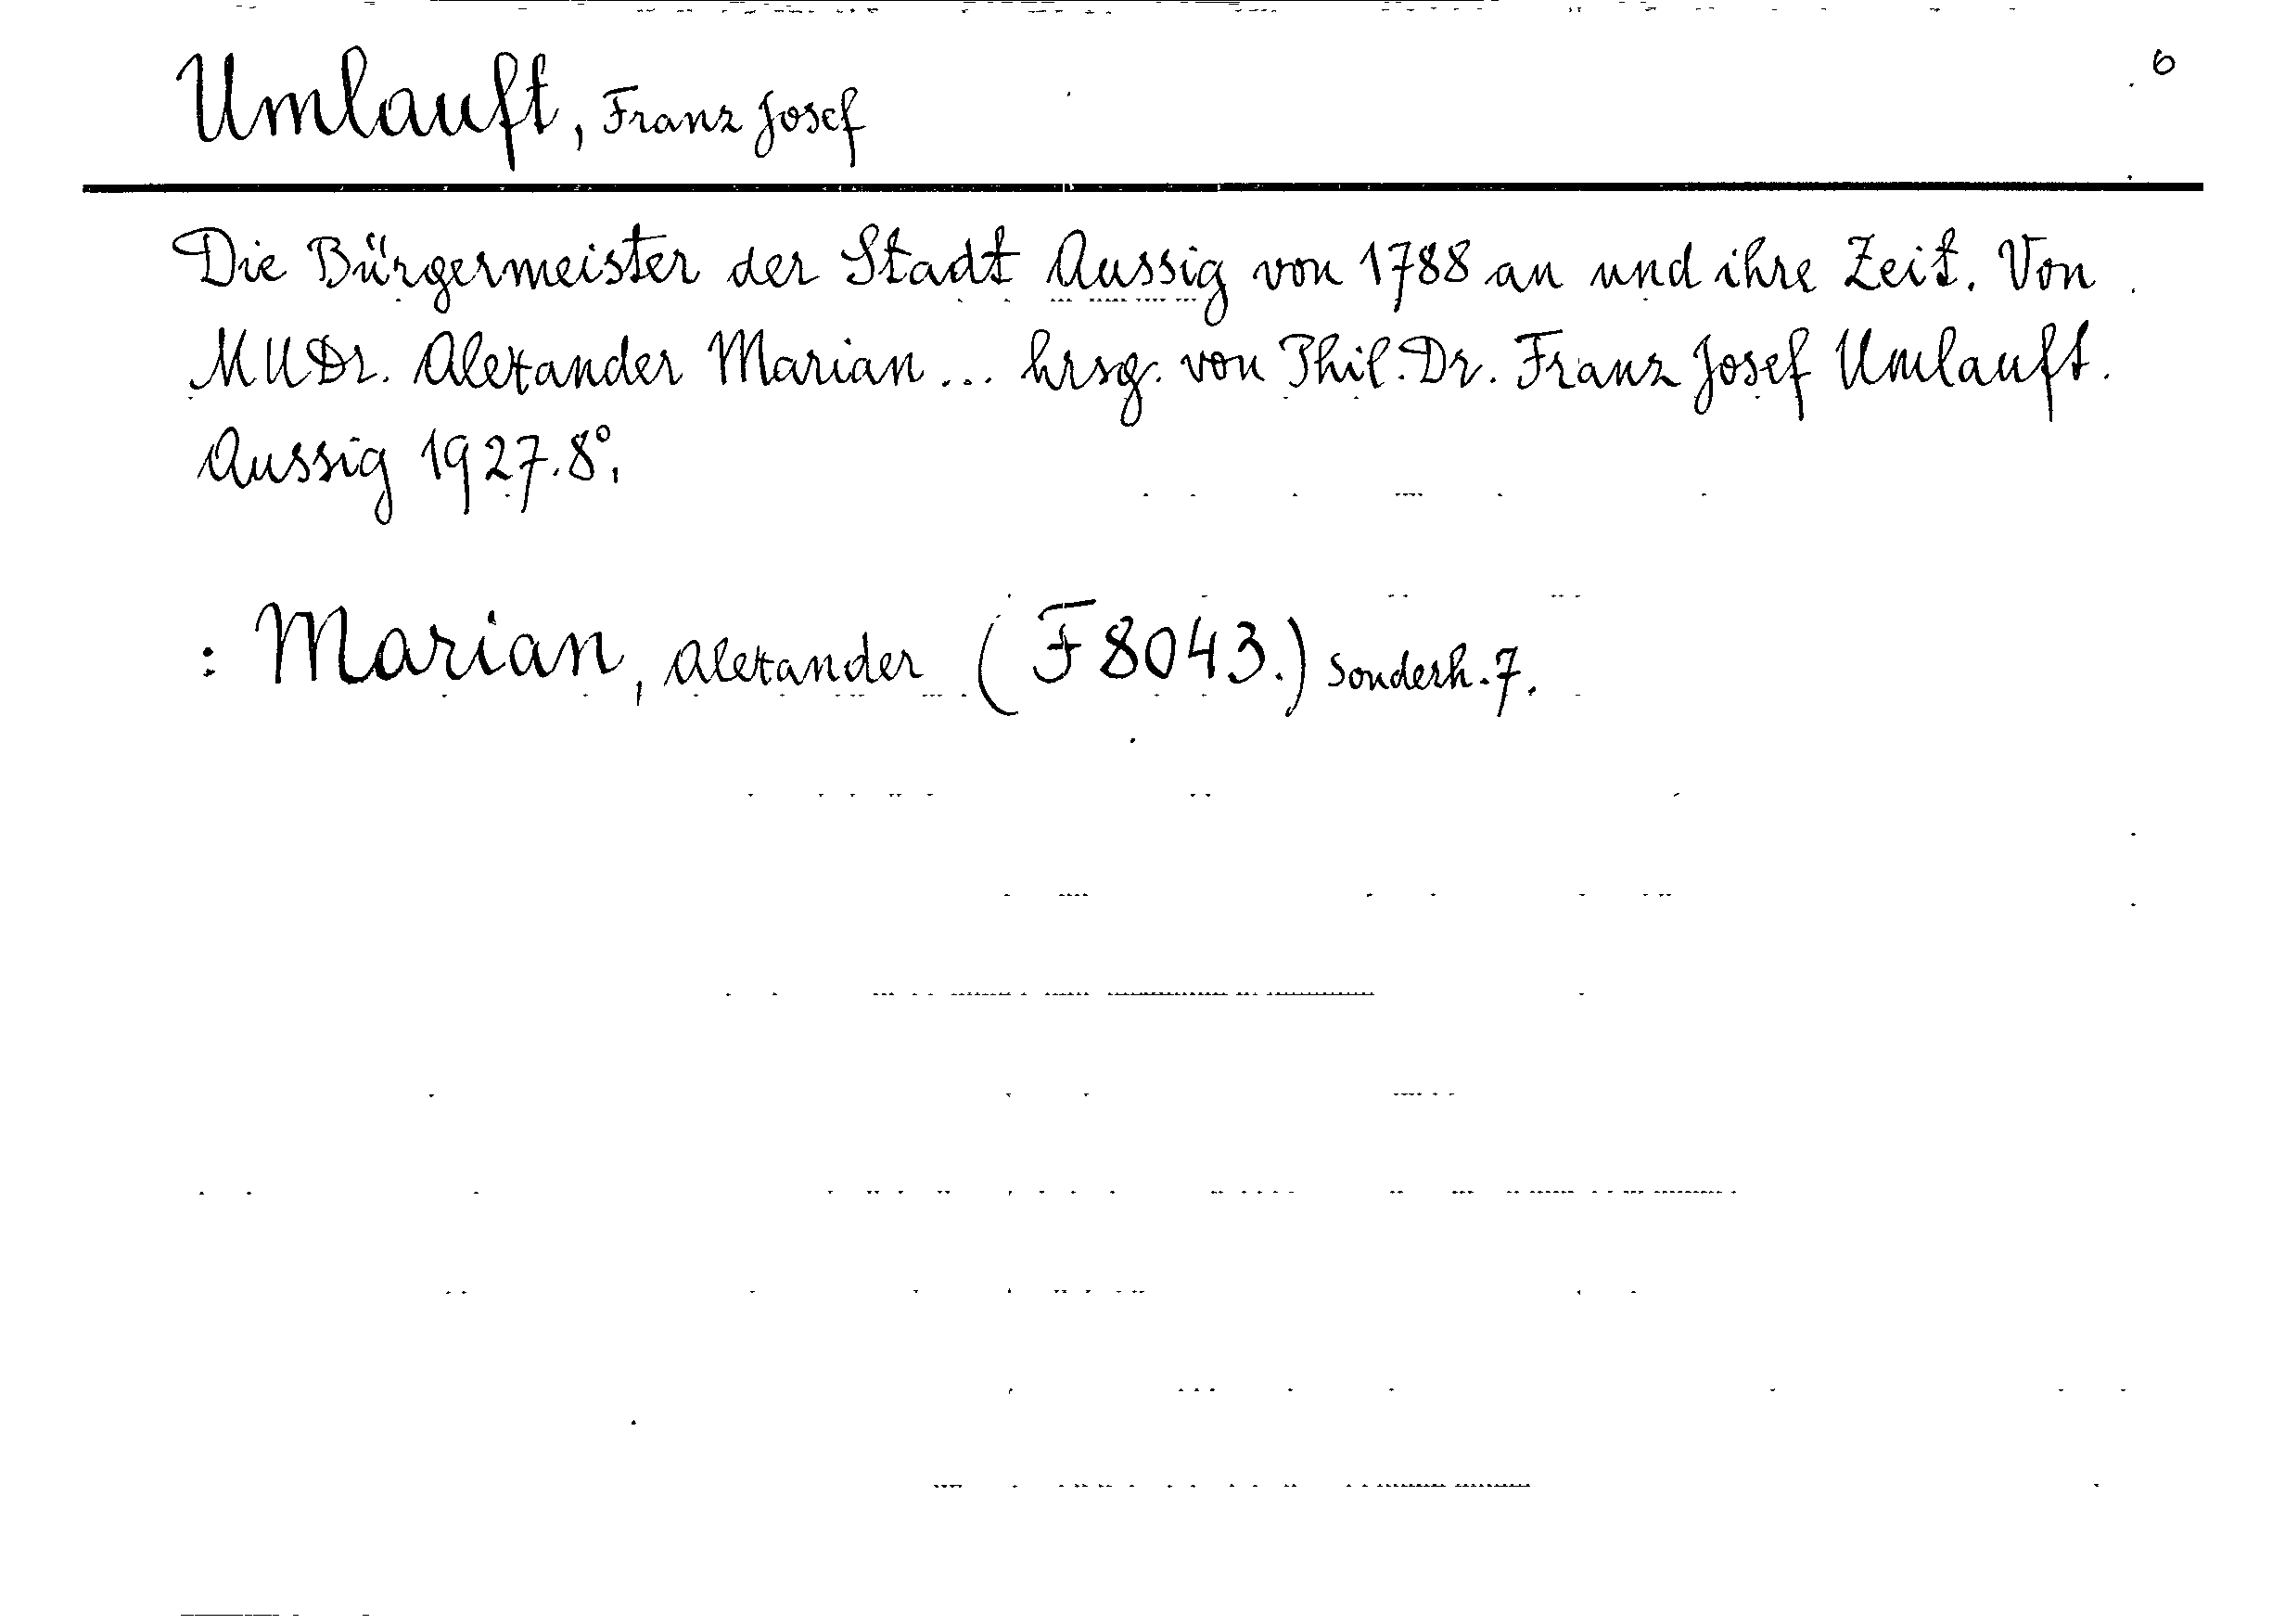 6
Umlauft, Franz Josef
Die Bürgermeister der Stadt Aussig von 1788 an und ihre Zeit. Von
MUDr. Alexander Marian... hrsg. von Phil. Dr. Franz Josef Umlauft.
Aussig 1927. 8°.
: Marian, Alexander (F 8043.) Sonderh. 7.